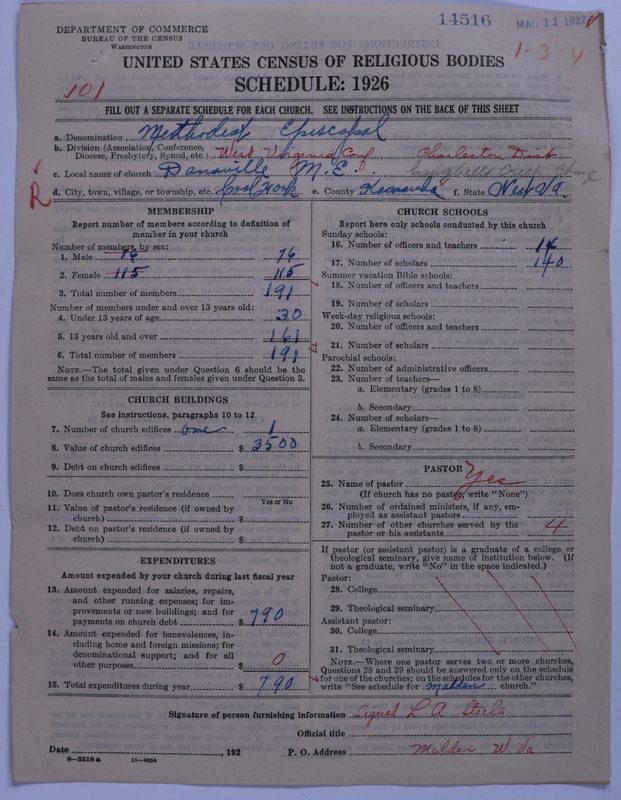 14516
MAR 11 1927
DEPARTMENT OF COMMERCE
BUREAU OF THE CENSUS
WASHINGTON
1-3-4
UNITED STATES CENSUS OF RELIGIOUS BODIES
101
SCHEDULE: 1926
FILL OUT A SEPARATE SCHEDULE FOR EACH CHURCH. SEE INSTRUCTIONS ON THE BACK OF THIS SHEET
a. Denomination Methodist Episcopal
b. Division (Association, Conference,
Diocese, Presbytery, Synod, etc.) West Virginia Conf Charleston Dist
c. Local name of church Danaville M.E. Campbells Creek Charge
R
d. City, town, village, or township, etc. Coal Fork e. County Kanawha f. State West Va.
MEMBERSHIP
Report number of members according to definition of
member in your church
Number of members, by sex:
1. Male 76 76
2. Female 115 115
3. Total number of members 191
Number of members under and over 13 years old:
4. Under 13 years of age 30
5. 13 years old and over 161
6. Total number of members 191
NOTE.—The total given under Question 6 should be the
same as the total of males and females given under Question 3.
CHURCH BUILDINGS
See instructions, paragraphs 10 to 12
7. Number of church edifices one 1
8. Value of church edifices $ 3500
9. Debt on church edifices $
10. Does church own pastor's residence
Yes or No
11. Value of pastor's residence (if owned by
church) $
12. Debt on pastor's residence (if owned by
church) $
EXPENDITURES
Amount expended by your church during last fiscal year
13. Amount expended for salaries, repairs,
and other running expenses; for im-
provements or new buildings; and for
payments on church debt $ 790
14. Amount expended for benevolences, in-
cluding home and foreign missions; for
denominational support; and for all
other purposes $ 0
15. Total expenditures during year $ 790
CHURCH SCHOOLS
Report here only schools conducted by this church
Sunday schools:
16. Number of officers and teachers 14
17. Number of scholars 140
Summer vacation Bible schools:
18. Number of officers and teachers
19. Number of scholars
Week-day religious schools:
20. Number of officers and teachers
21. Number of scholars
Parochial schools:
22. Number of administrative officers
23. Number of teachers—
a. Elementary (grades 1 to 8)
b. Secondary
24. Number of scholars—
a. Elementary (grades 1 to 8)
b. Secondary
PASTOR
25. Name of pastor Yes
(If church has no pastor, write "None")
26. Number of ordained ministers, if any, em-
ployed as assistant pastors
27. Number of other churches served by the
pastor or his assistants 4
If pastor (or assistant pastor) is a graduate of a college or
theological seminary, give name of institution below. (If
not a graduate, write "No" in the space indicated.)
Pastor:
28. College
29. Theological seminary
Assistant pastor:
30. College
31. Theological seminary
NOTE.—Where one pastor serves two or more churches,
Questions 28 and 29 should be answered only on the schedule
for one of the churches; on the schedules for the other churches,
write "See schedule for Malden church."
Signature of person furnishing information Signed L A
Official title
Date , 192 P. O. Address Malden W. Va
8—5518 a 11—9054